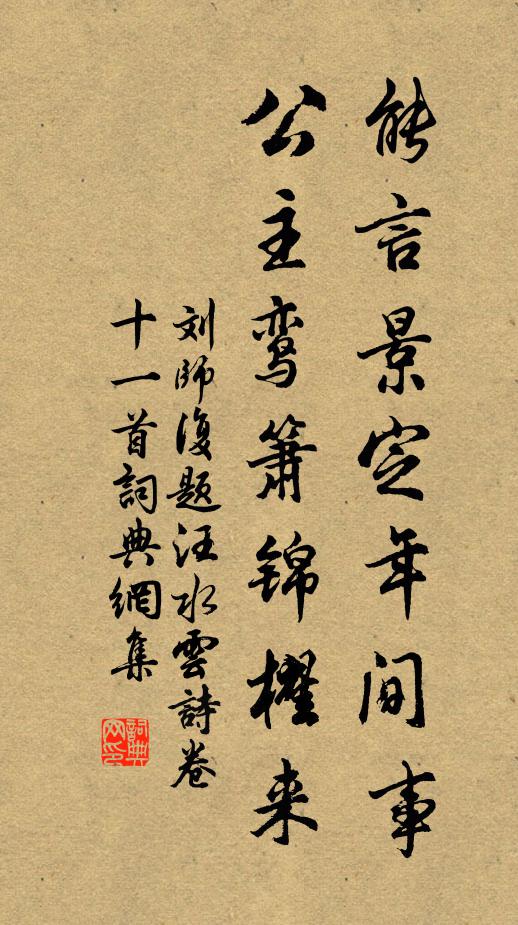 能言景定年间事
公主鸾箫锦櫂来
刘師復题汪水雲詩卷
十一首詞典網集
詞典网印